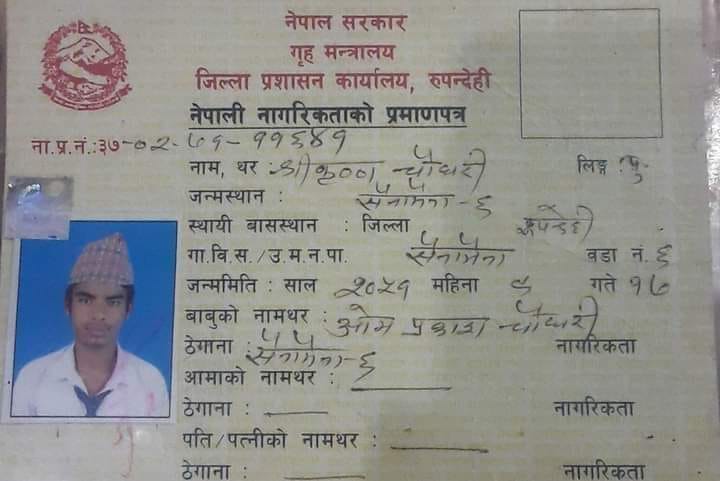 नेपाल सरकार
गृह मन्त्रालय
जिल्ला प्रशासन कार्यालय, रुपन्देही
नेपाली नागरिकताको प्रमाणपत्र
ना.प्र.नं.:३७-०२-७१-११६४१
नाम, थर : श्रीकृष्ण चौधरी लिङ्ग : पु
जन्मस्थान : सैनामैना - ६
स्थायी बासस्थान : जिल्ला रुपन्देही
गा.वि.स./उ.म.न.पा. सैनामैना वडा नं. ६
जन्ममिति : साल २०५१ महिना गते १७
बाबुको नामथर : ओम प्रकाश चौधरी
ठेगाना : सैनामैना-६ नागरिकता
आमाको नामथर :
ठेगाना : नागरिकता
पति/पत्नीको नामथर :
ठेगाना : नागरिकता